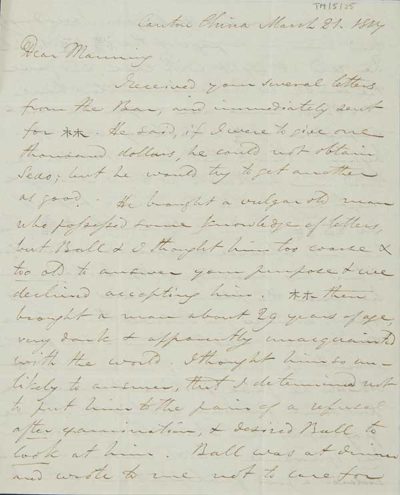 TM/5/25
Canton China March 21. 1807
Dear Manning
I received your several letters
from the Bear, and immediately sent
for 林林. He said, if I were to give one
thousand dollars, he could not obtain
Seao; but he would try to get another
as good. He brought a vulgar old man
who possessed some knowledge of letters,
but Ball & I thought him too coarse &
too old to answer your purpose & we
declined accepting him. 林林 then
brought a man about 29 years of age
very dark & apparently unacquainted
with the world. I thought him so un-
likely to answer, that I determined not
to put him to the pain of a refusal
after examination, & desired Ball to
look at him. Ball was at dinner
and wrote to me not to care for